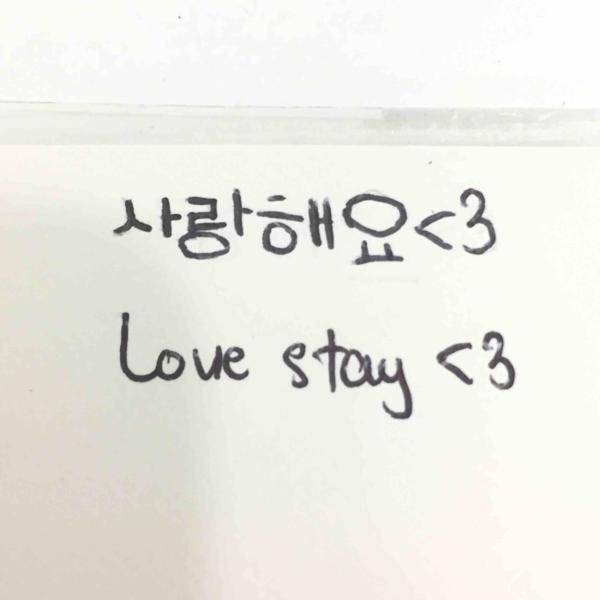 사랑해요<3
love stay <3